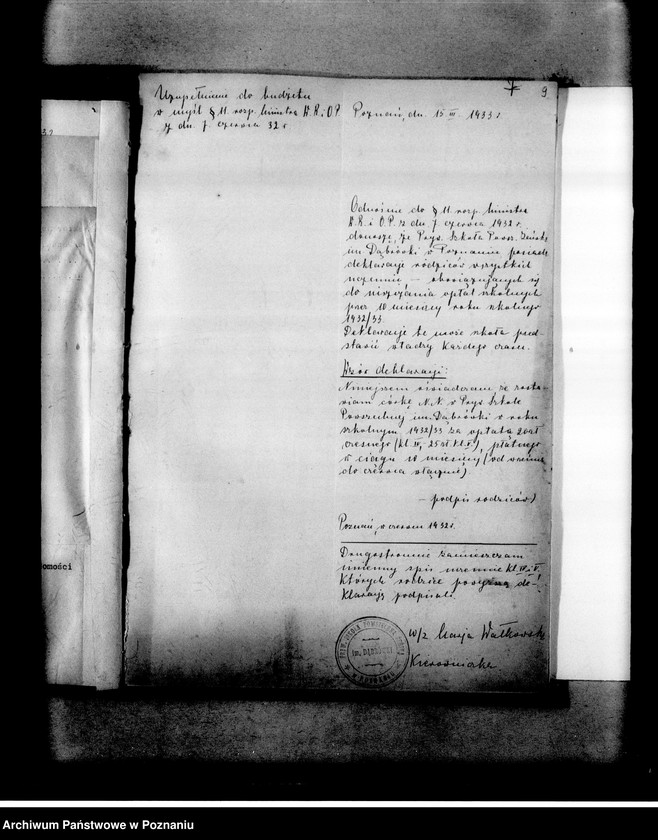 Uzupełnienie do budżetu
w myśl § 11. rozp. Ministra W.R. i O.P.
z dn. 7 czerwca 32 r.
9
Poznań, dn. 15 III. 1933 r.
Odnośnie do § 11. rozp. Ministra
W.R. i O.P. z dn. 7 czerwca 1932 r.
donoszę, że Pryw. Szkoła Powsz. Żeńska
im. Dąbrówki w Poznaniu posiada
deklaracje rodziców wszystkich
uczennic – obowiązujących się
do uiszczania opłat szkolnych
przez 10 miesięcy roku szkolnego
1932/33.
Deklaracje te może szkoła przed-
stawić władzy każdego czasu.
Wzór deklaracji:
Niniejszem oświadczam że zosta-
wiam córkę N.N. w Pryw. Szkole
Powszechnej im. Dąbrówki w roku
szkolnym 1932/33 za opłatą 20 zł
czesnego (kl. IV, 25 zł. kl. V.), płatnego
w ciągu 10 miesięcy (od września
do czerwca włącznie).
– podpis rodziców)
Poznań, w czerwcu 1932 r.
Drugostronnie zamieszczam
imienny spis uczennic kl. IV i V.
których rodzice powyższą de-
klarację podpisali.
im. DĄBRÓWKI
W POZNANIU
w/z Marja Wałkowska
Kierowniczka
omości
Archiwum Państwowe w Poznaniu